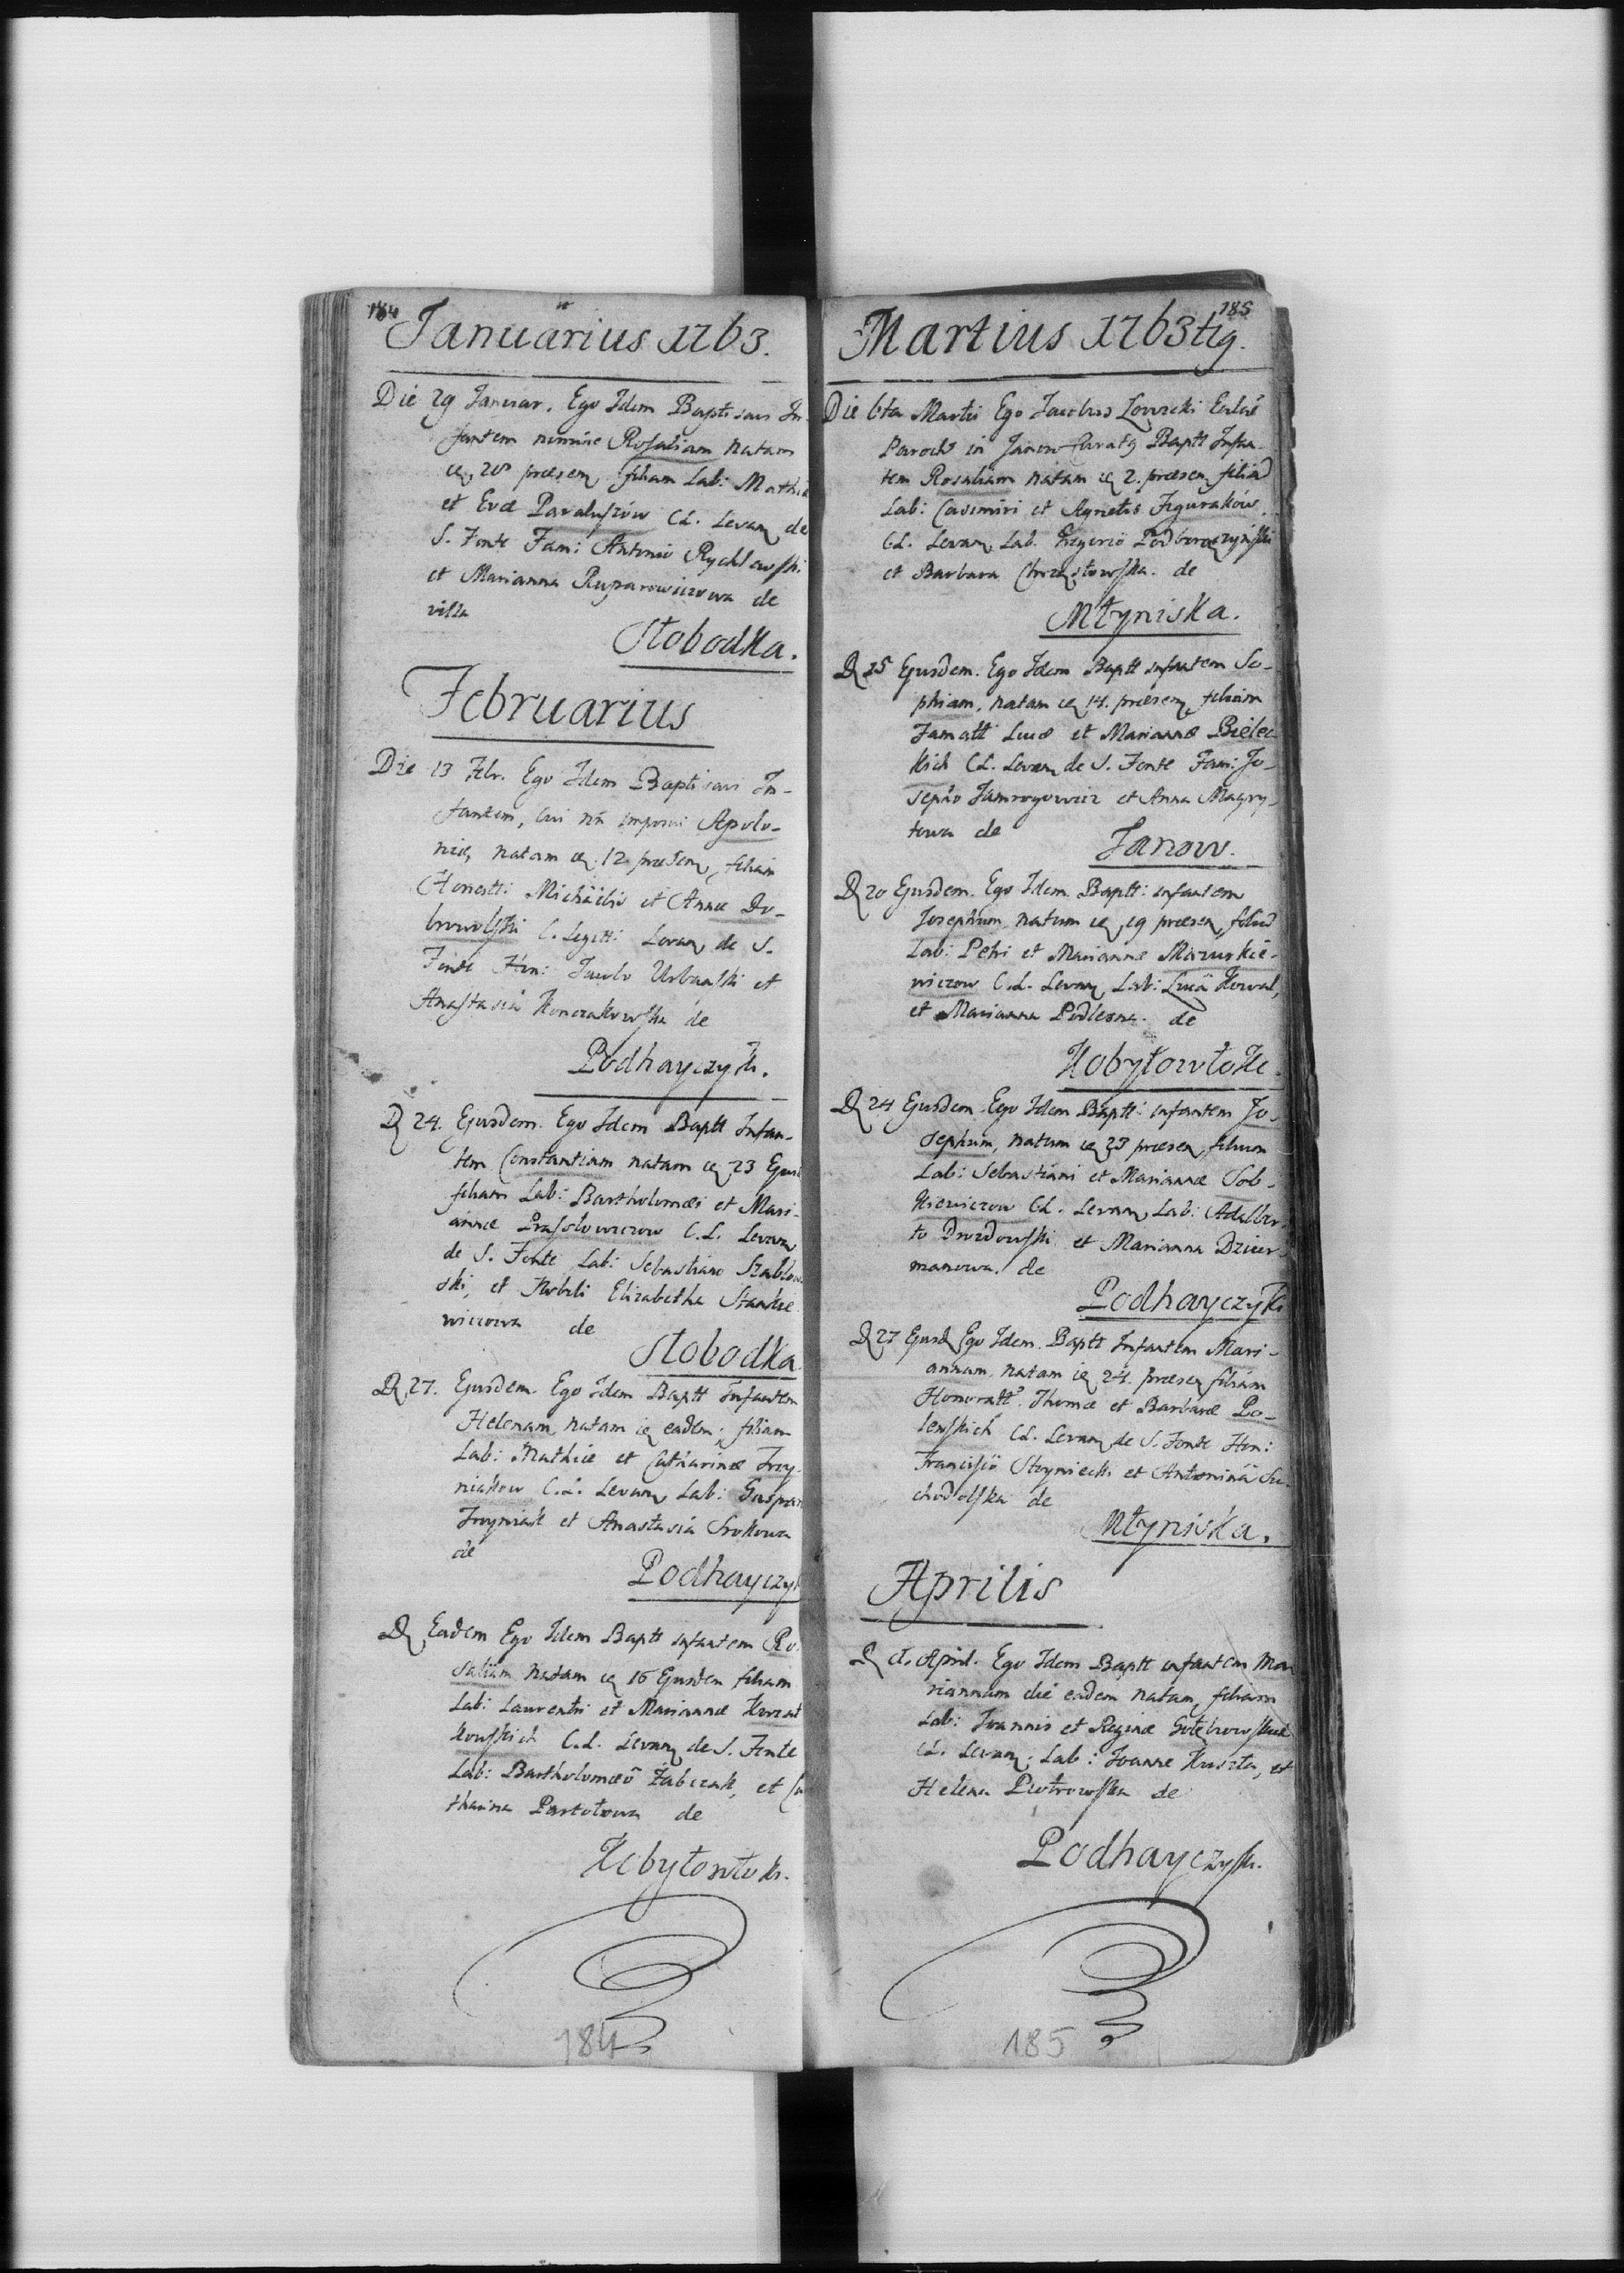 184
Januarius 1763.
Die 29 Januar. Ego Idem Baptisavi In-
fantem nomine Rosaliam natam
20 præsen, filiam Lab: Mathiæ
et Evæ Paraluszów CL. Levan de
S. Fonte Fam: Antonio Rychlewski
et Marianna Ruparowiczowa de
villa
Słobodka.
Februarius
Die 13 Febr. Ego Idem Baptisavi In-
fantem, cui imposui Apolo-
niæ, natam 12 præsen, filiam
Honestt: Michäelis et Annæ Do-
browolski C. Legitt: Levan de S.
Fonte Hon: Jacobo Urbanski et
Anastasia Konczakowska de
Podhayczyk.
D 24. Ejusdem. Ego Idem Baptt Infan-
tem Constantiam natam 23 Ejusd
filiam Lab: Bartholomæi et Mari-
annæ Prassołowiczow C.L. Levan
de S. Fonte Lab: Sebastiano Szablow
ski, et Nobili Elizabetha Stankie
wiczowa de
Słobodka
D 27. Ejusdem. Ego Idem Baptt Infantem
Helenam natam eadem; filiam
Lab: Mathiæ et Catharinæ Troy-
niakow C.L. Levan Lab: Gaspar
Troyniak et Anastasia Srokowa
de
Podhayczyk
D Eadem Ego Idem Baptt infantem Ro-
saliam natam 16 Ejusdem filiam
Lab: Laurentii et Mariannæ
kowskich C.L. Levan de S. Fonte
Lab: Bartholomæo Żabczak, et Ca
tharina Partołowa de
Kobyłowłok.
184
185
Martius 1763tig.
Die 6ta Martii Ego Jacobus Łowicki Eccl
Paroch in Janow Curatg Baptt Infan-
tem Rosaliam natam 2. præsen filiā
Lab: Casimiri et Agnetis Figuraków
CL. Levan Lab. Gregorio Podhoroczyński
et Barbara Chrząstowska. de
Młyniska.
D 15 Ejusdem. Ego Idem Baptt infantem So-
phiam, natam 14. præsen, filiam
Famatt Lucæ et Mariannæ Bielec
kich CL. Levan de S. Fonte Fam: Jo-
sepho Jamrogowicz et Anna Magry-
towa de
Janow.
D 20 Ejusdem. Ego Idem Baptt: infantem
Josephum, natum 19 præsen, filiū
Lab: Petri et Mariannæ Mazurkie-
wiczow C.L. Levan Lab: Lucä Kowal,
et Marianna Podlesna. de
Kobyłowłoki.
D 24 Ejusdem. Ego Idem Baptt: infantem Jo-
sephum, natum 23 præsen, filium
Lab: Sebastiani et Mariannæ Sob-
kiewiczow CL. Levan Lab: Adalber-
to Drozdowski et Marianna Dzier-
manowa. de
Podhayczyk
D 27 Ejusd Ego Idem Baptt Infantem Mari-
annam natam 24. præsen filiam
Honoratt. Thomæ et Barbaræ Po-
lewskich CL. Levan de S. Fonte Hon:
Francisco Słoyniecki et Antonina Su-
chodolska de
Młyniska.
Aprilis
D April. Ego Idem Baptt infantem Ma-
riannam die eadem natam, filiam
Lab: Joannis et Reginæ Gołębiowskich
CL. Levan Lab: Joanne Kuszta, et
Helena Piotrowska de
Podhayczyk.
185